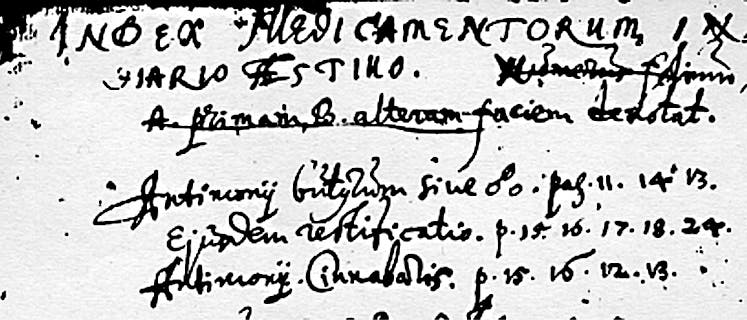 INDEX MEDICAMENTORUM IN
IARIO ÆSTIVO. Numerus
A. primam, B. alteram faciem denotat.
Antimonij butyrum sive pag. 11. 14. 13.
Ejusdem rectificatio. p. 15. 16. 17. 18. 24.
Antimonij Cinnabaris. p. 15. 16. 12. 13.